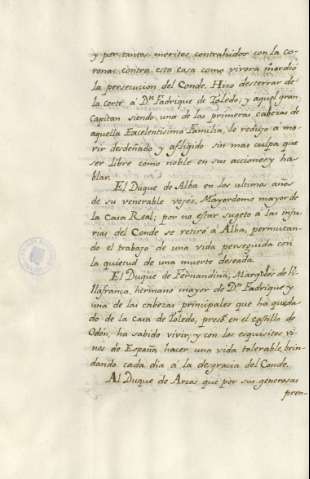 y por tantos meritos contrahidos con la co-
rona; contra esta casa como vivora mordió
la persecucion del Conde. Hizo desterrar de
la corte á Dn. Fadrique de Toledo, y aquel gran
Capitan siendo una de las primeras cabezas de
aquella Excelentisima Familia, se redujo a mo-
rir desdeñado y afligido sin mas culpa que
ser libre como noble en sus acciones y ha-
blar.
El Duque de Alba en los ultimos años
de su venerable vejes, Mayordomo mayor de
la Casa Real; por no estar sugeto a las inju-
rias del Conde se retiró a Alba, permutan-
do el trabajo de una vida perseguida con
la quietud de una muerte deseada.
El Duque de Fernandina, Marques de Vi-
llafranca, hermano mayor de Dn. Fadrique y
una de las cabezas principales que ha queda-
do de la casa de Toledo, preso en el castillo de
Odon, ha sabido vivir y con los exquisitos vi-
nos de España hacer una vida tolerable, brin-
dando cada dia a la desgracia del Conde.
Al Duque de Arcos que por sus generosas
pren-